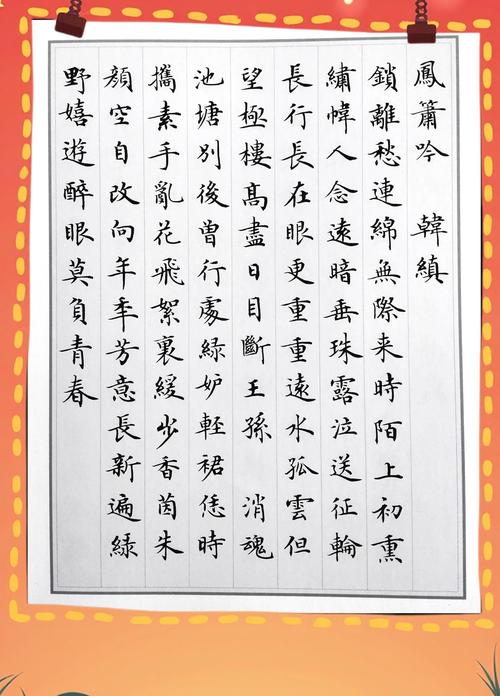 鳳簫吟 韓縝
鎖離愁連綿無際来時陌上初熏
繡幃人念遠暗垂珠露泣送征輪
長行長在眼更重重遠水孤雲但
望極樓高盡日目斷王孫 消魂
池塘別後曽行處綠妒軽裙恁時
攜素手亂花飛絮裏緩步香茵朱
顏空自改向年年芳意長新遍綠
野嬉遊醉眼莫負青春